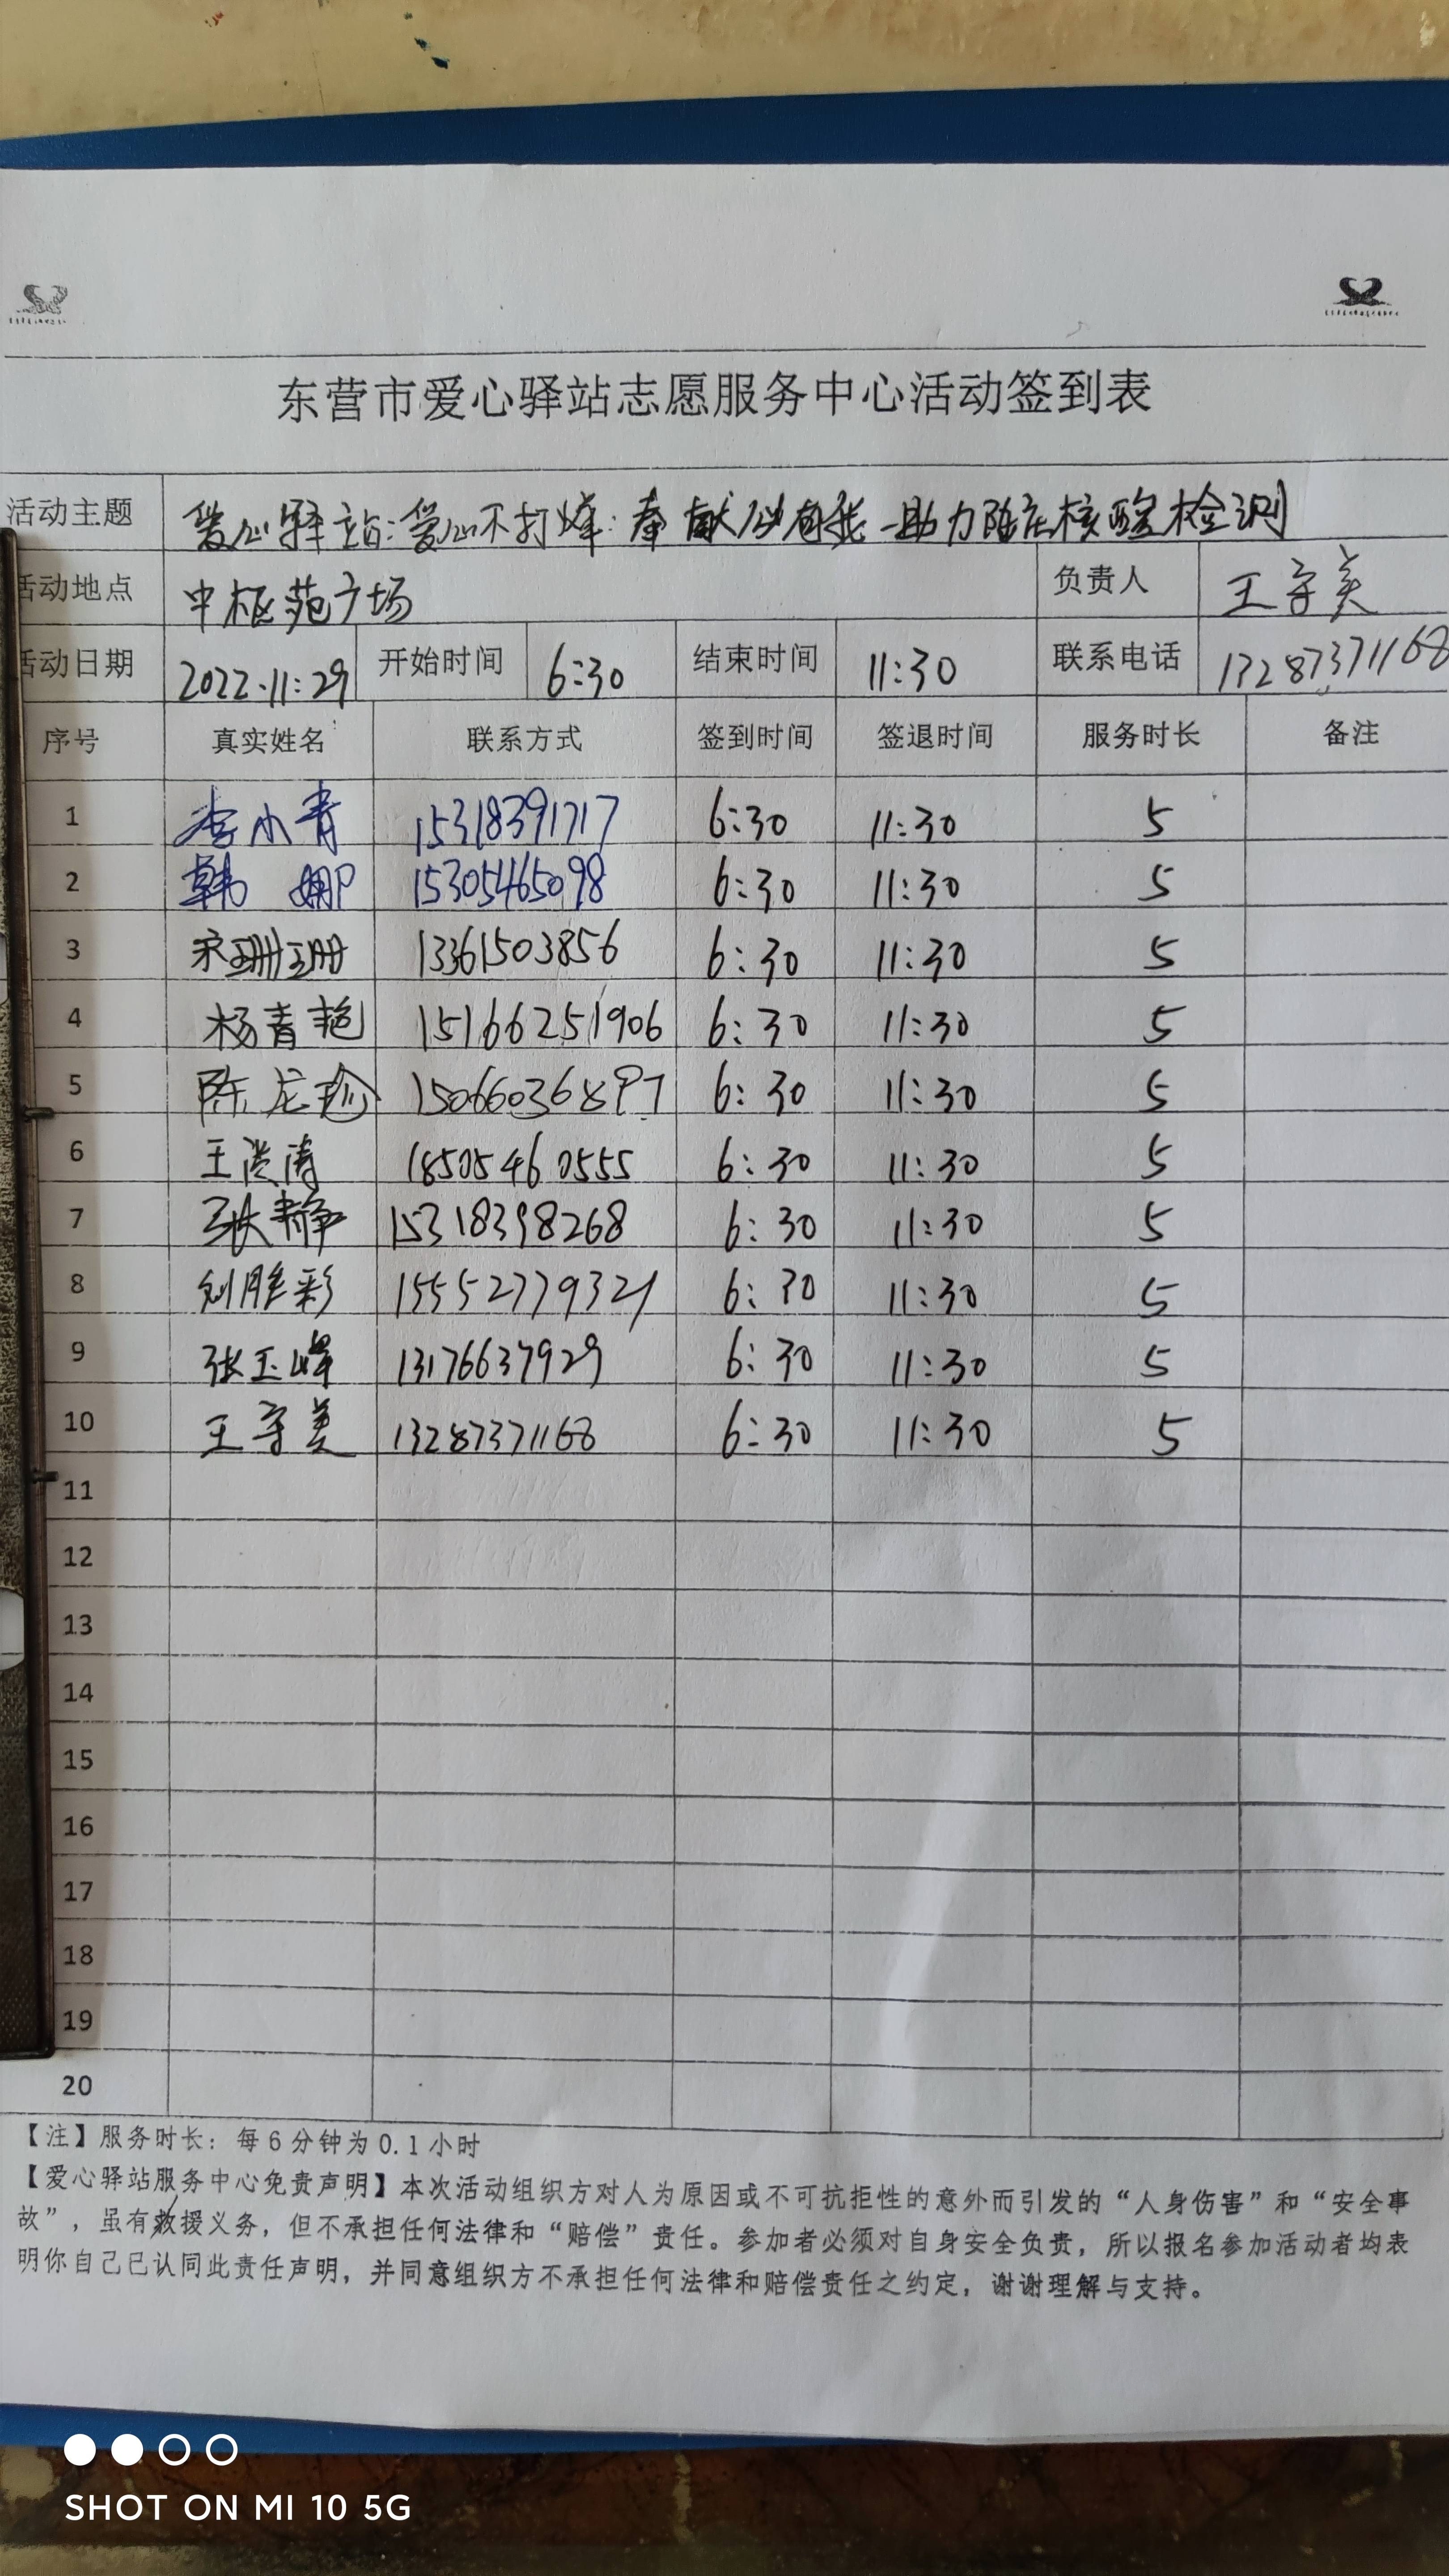 东营市爱心驿站志愿服务中心活动签到表
活动主题 爱心驿站:爱心不打烊:奉献 有我 助力陈庄核酸检测
活动地点 中枢苑广场 负责人 王守美
活动日期 2022.11:29 开始时间 6:30 结束时间 11:30 联系电话 13287371168
序号 真实姓名 联系方式 签到时间 签退时间 服务时长 备注
1 李小青 15318391717 6:30 11:30 5
2 韩娜 15305465098 6:30 11:30 5
3 宋珊珊 13361503856 6:30 11:30 5
4 杨青艳 15166251906 6:30 11:30 5
5 陈龙珍 15066036897 6:30 11:30 5
6 王洪涛 18505460555 6:30 11:30 5
7 张静 15318398268 6:30 11:30 5
8 刘胜彩 15552779321 6:30 11:30 5
9 张玉峰 13176637929 6:30 11:30 5
10 王守美 13287371168 6:30 11:30 5
11
12
13
14
15
16
17
18
19
20
【注】服务时长：每6分钟为0.1小时
【爱心驿站服务中心免责声明】本次活动组织方对人为原因或不可抗拒性的意外而引发的“人身伤害”和“安全事
故”，虽有救援义务，但不承担任何法律和“赔偿”责任。参加者必须对自身安全负责，所以报名参加活动者均表
明你自己已认同此责任声明，并同意组织方不承担任何法律和赔偿责任之约定，谢谢理解与支持。
SHOT ON MI 10 5G